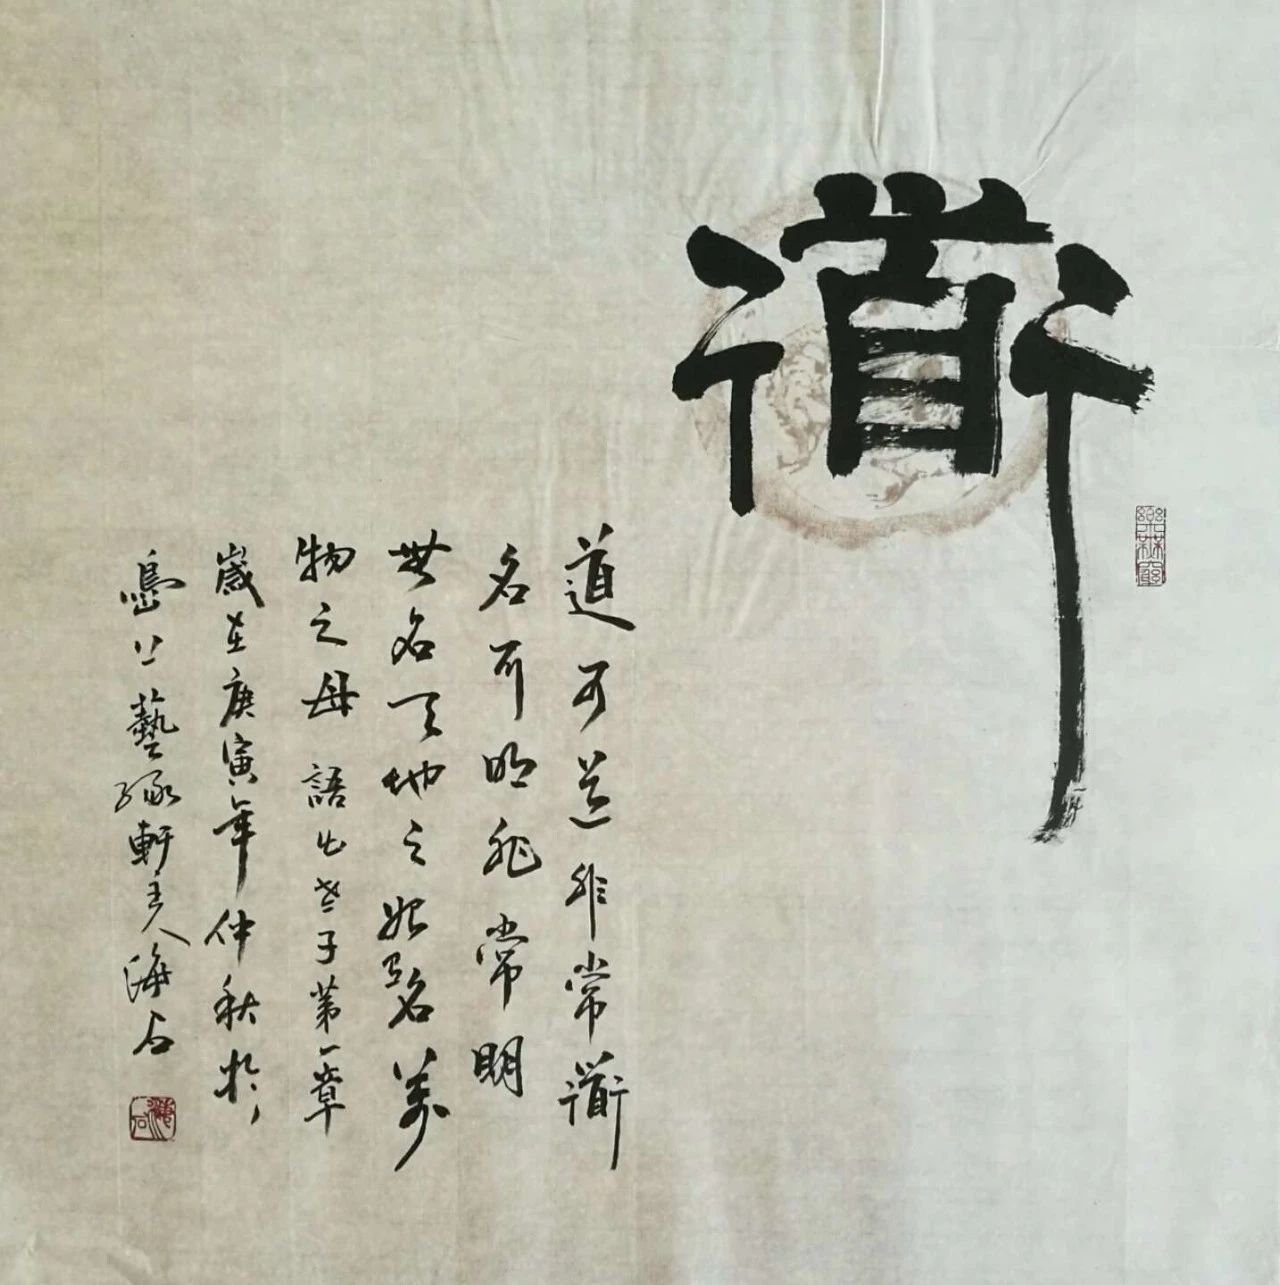 衜
道可道非常衜
名可明非常明
無名天地之始有名萬
物之母 語出老子第一章
歲在庚寅年仲秋於
島上藝緣軒主人海石
海石